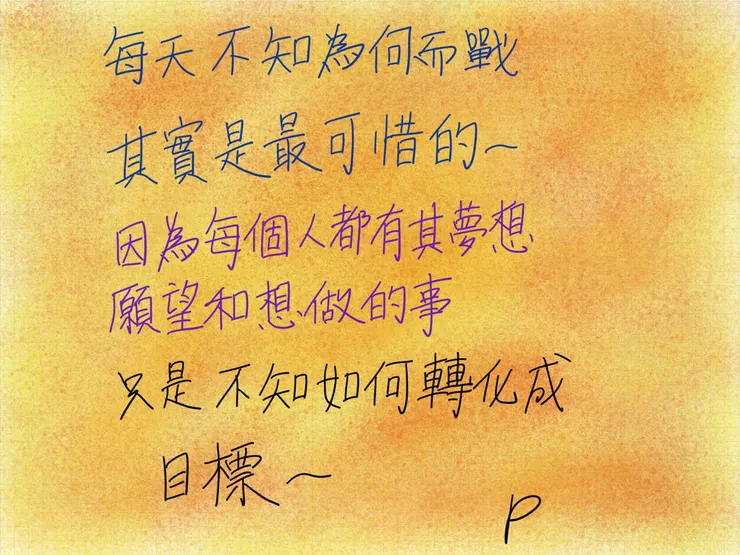 每天不知為何而戰
其實是最可惜的~
因為每個人都有其夢想
願望和想做的事
只是不知如何轉化成
目標~
P